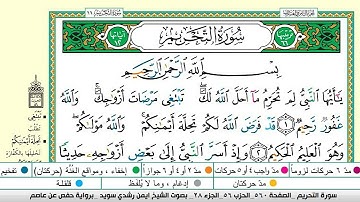 سُورَةُ التَّحْرِيمِ
بِسْمِ اللَّهِ الرَّحْمَٰنِ الرَّحِيمِ
يَٰٓأَيُّهَا ٱلنَّبِيُّ لِمَ تُحَرِّمُ مَآ أَحَلَّ ٱللَّهُ لَكَۖ تَبْتَغِي مَرْضَاتَ أَزْوَٰجِكَۚ وَٱللَّهُ
غَفُورٌ رَّحِيمٌ ١ قَدْ فَرَضَ ٱللَّهُ لَكُمْ تَحِلَّةَ أَيْمَٰنِكُمْۚ وَٱللَّهُ مَوْلَىٰكُمْۖ
وَهُوَ ٱلْعَلِيمُ ٱلْحَكِيمُ ٢ وَإِذْ أَسَرَّ ٱلنَّبِيُّ إِلَىٰ بَعْضِ أَزْوَٰجِهِۦ حَدِيثًا
مدّ ٦ حركات لزوماً مدّ ٢ أو ٤ أو ٦ جوازاً إخفاء، ومواقع الغُنَّة (حركتان) تفخيم
مدّ واجب ٤ أو ٥ حركات مدّ حركتان إدغام، وما لا يُلفَظ قلقلة
سورة التحريم - الصفحة ٥٦٠ - الجزء ٢٨ - بصوت الشيخ ايمن رشدي سويد - برواية حفص عن عاصم